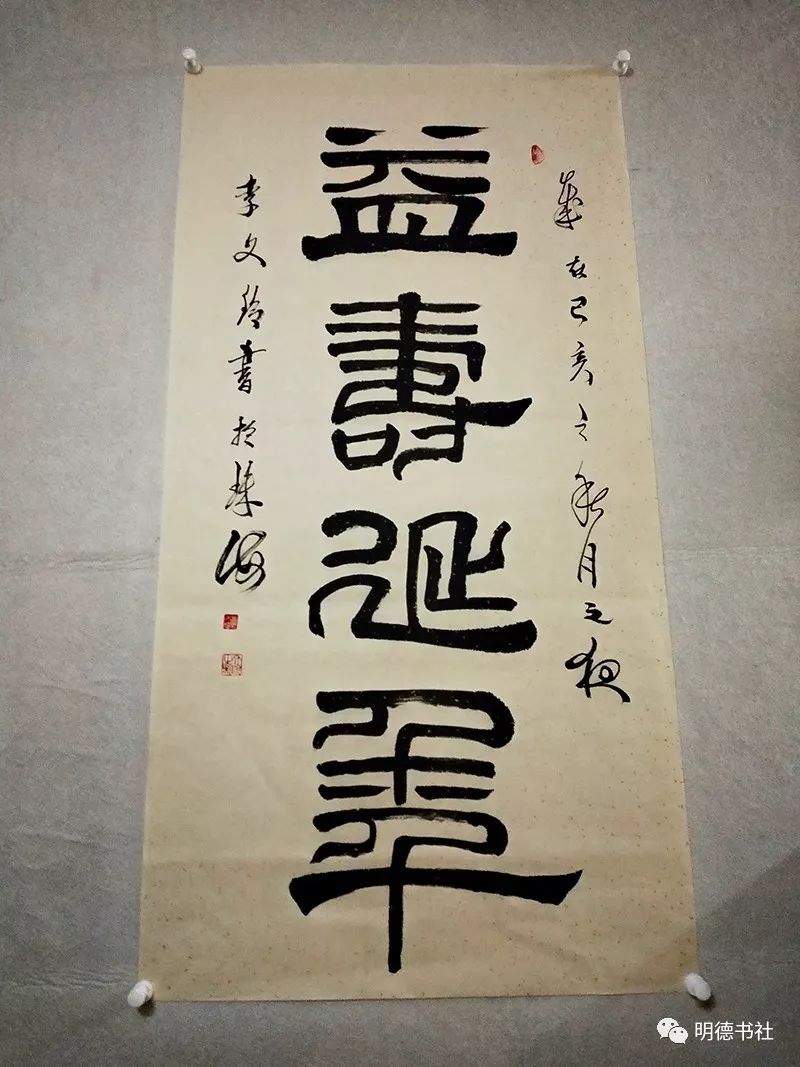 益壽延年
歲在己亥之秋月之夜
李文玲書於珠海
明德书社